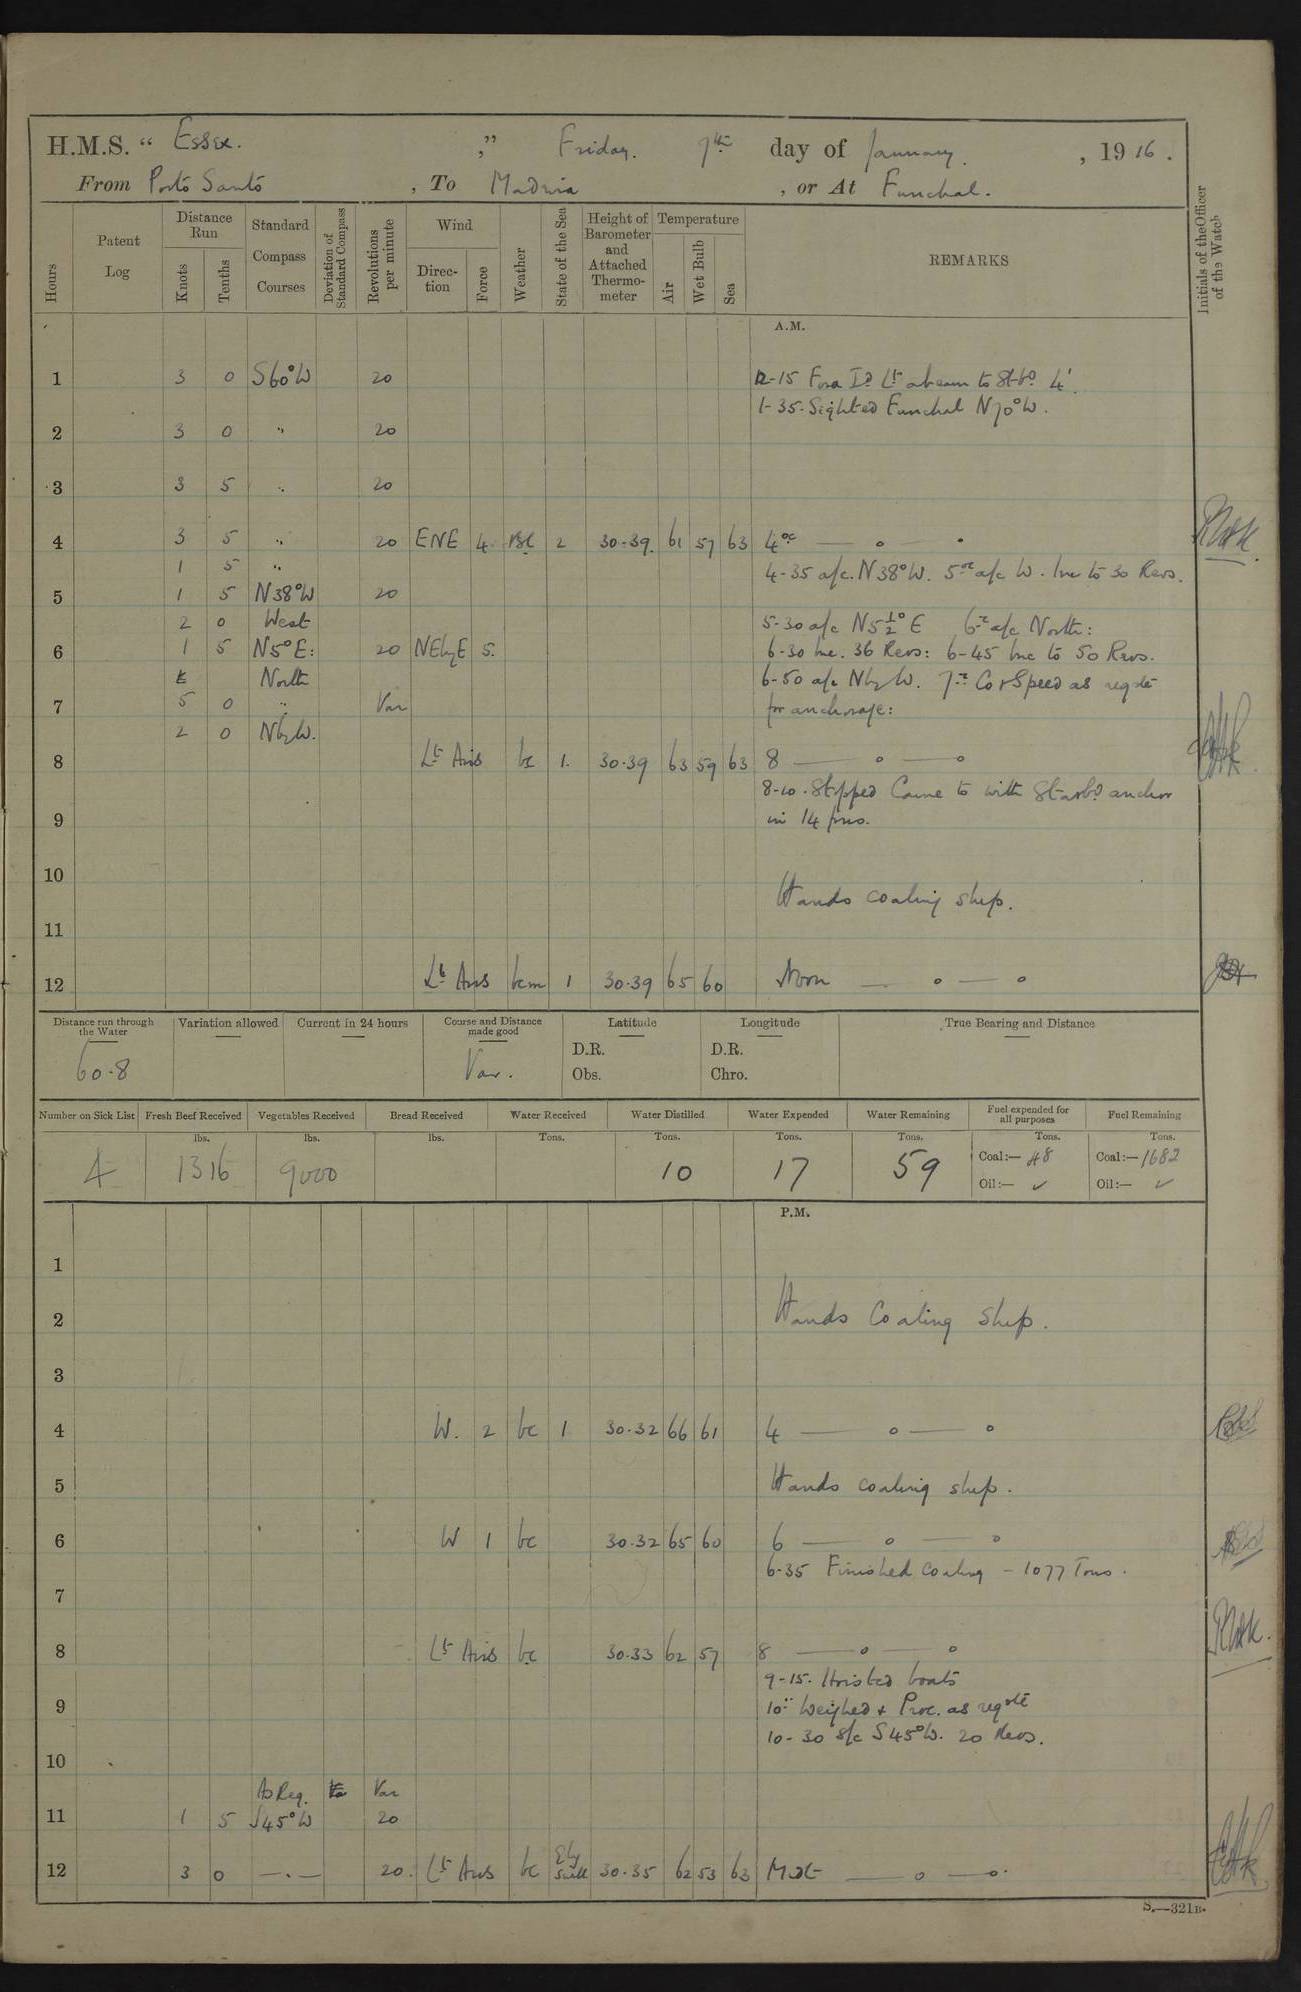 H.M.S. “ Essex. ,” Friday. 7th day of January. , 1916.
From Porto Santo , To Madeira , or At Funchal.
Hours
Patent Log
Distance Run
Knots
Tenths
Standard Compass Courses
Deviation of Standard Compass
Revolutions per minute
Wind
Direction
Force
Weather
State of the Sea
Height of Barometer and Attached Thermometer
Temperature
Air
Wet Bulb
Sea
REMARKS
Initials of the Officer of the Watch
A.M.
1 3 0 S60°W 20 12-15 Fora Id Lt abeam to Stbd 4'
1-35. Sighted Funchal N70°W.
2 3 0 " 20
3 3 5 " 20
4 3 5 " 20 ENE 4 2 30.39 61 57 63 4
1 5 " 4-35 a/c. N38°W. 5 a/c W. Inc to 30 Revs.
5 1 5 N38°W 20
2 0 West 5-30 a/c N5½°E 6 a/c North:
6 1 5 N5°E: 20 NEbyE 5. 6-30 Inc. 36 Revs: 6-45 Inc to 50 Revs.
North 6-50 a/c NbyW. 7 Co & Speed as reqte
7 5 0 " Var for anchorage:
2 0 NbyW.
8 Lt Airs bc 1. 30.39 63 59 63 8
8-10. Stopped Came to with Starbd anchor
9 in 14 fms.
10
Hands coaling ship.
11
12 Lt Airs bcm 1 30.39 65 60 Noon
Distance run through the Water
60.8
Variation allowed
Current in 24 hours
Course and Distance made good
Var.
Latitude
D.R.
Obs.
Longitude
D.R.
Chro.
True Bearing and Distance
Number on Sick List Fresh Beef Received Vegetables Received Bread Received Water Received Water Distilled Water Expended Water Remaining Fuel expended for all purposes Fuel Remaining
lbs. lbs. lbs. Tons. Tons. Tons. Tons. Tons. Tons.
4 1316 9000 10 17 59 Coal:— 48 Coal:— 1682
Oil:— ✓ Oil:— ✓
P.M.
1
2 Hands Coaling Ship.
3
4 W. 2 bc 1 30.32 66 61 4
5 Hands coaling ship.
6 W 1 bc 30.32 65 60 6
6-35 Finished coaling - 1077 Tons.
7
8 Lt Airs bc 30.33 62 57 8
9-15. Hoisted boats
9 10 Weighed & Proc. as reqte
10-30 S/c S45°W. 20 Revs.
10
As Req. Var
11 1 5 S45°W 20
12 3 0 —.— 20. Lt Airs bc Ely Swell 30.35 62 53 63 Mdt
S.—321B.